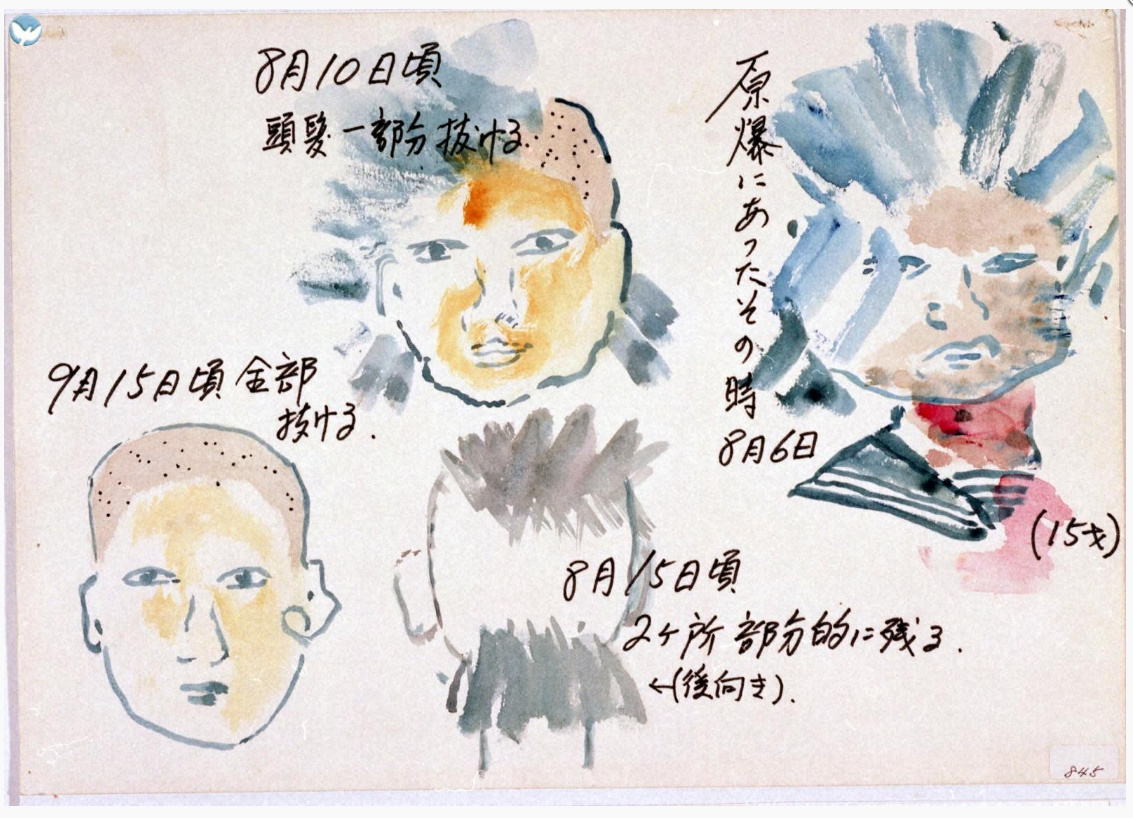 原爆にあったその時
8月6日
(15才)
8月10日頃
頭髪一部分抜ける.
8月15日頃
2ヶ所部分的に残る.
←(後向き).
9月15日頃全部
抜ける.
845